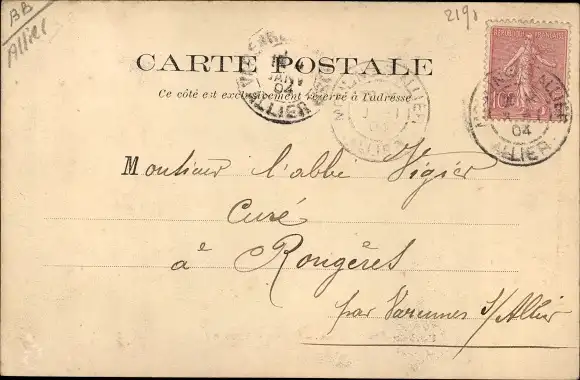 BB
Allier
2191
CARTE POSTALE
Ce côté est exclusivement réservé à l'adresse
RÉPUBLIQUE FRANÇAISE
10
JANV
04
ALLIER
04
ALLIER
04
ALLIER
Monsieur l'abbé Vigier
Curé
à Rongères
par Varennes s/Allier